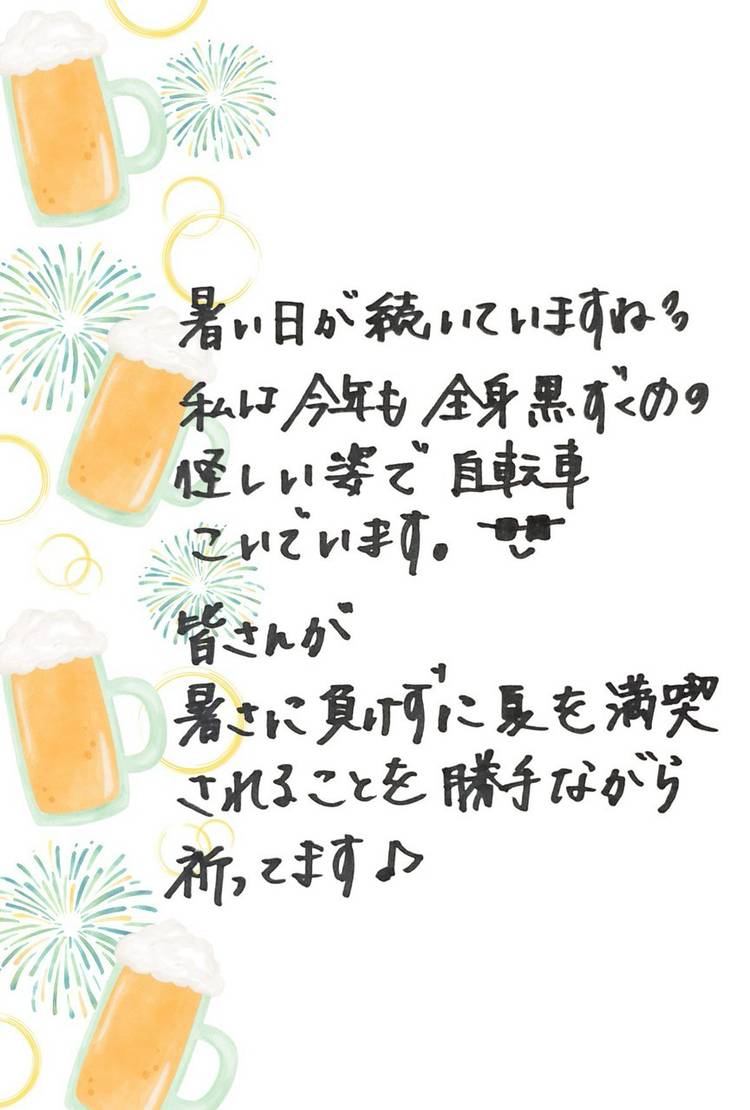 暑い日が続いていますね
私は今年も全身黒ずくめの
怪しい姿で自転車
こいでいます。
皆さんが
暑さに負けずに夏を満喫
されることを勝手ながら
祈ってます♪